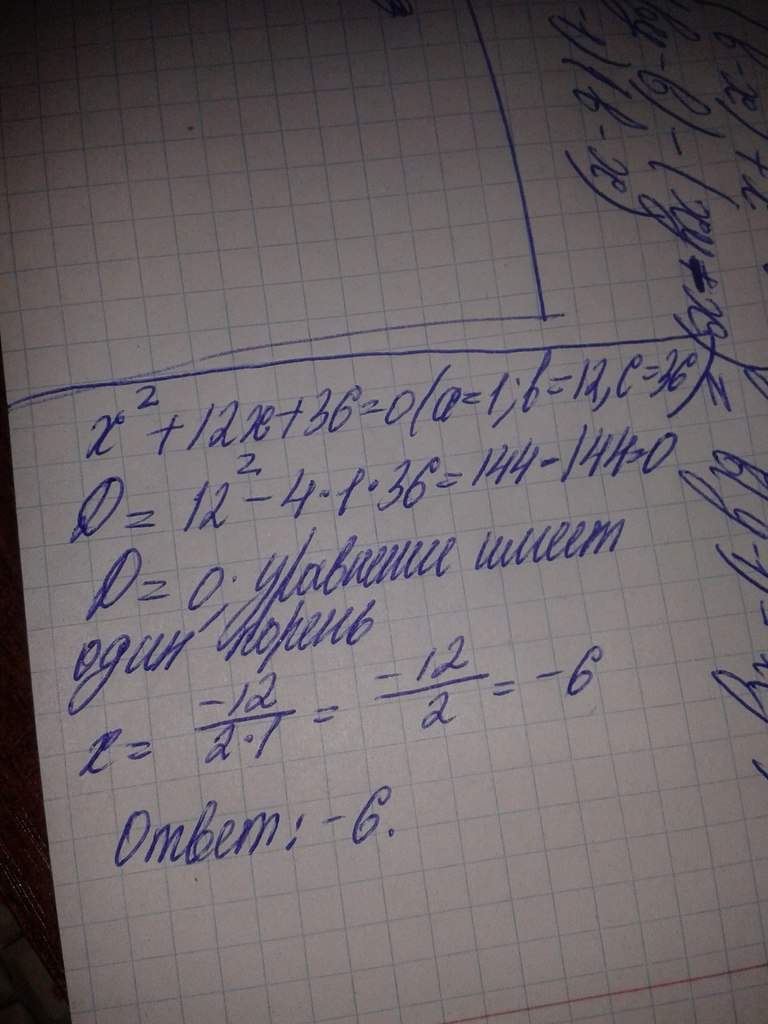 x² + 12x + 36 = 0 (a = 1; b = 12, c = 36)
D = 12² - 4 · 1 · 36 = 144 - 144 = 0
D = 0; уравнение имеет
один корень
x = -12 / 2·1 = -12 / 2 = -6
Ответ: -6.
(x-y)(